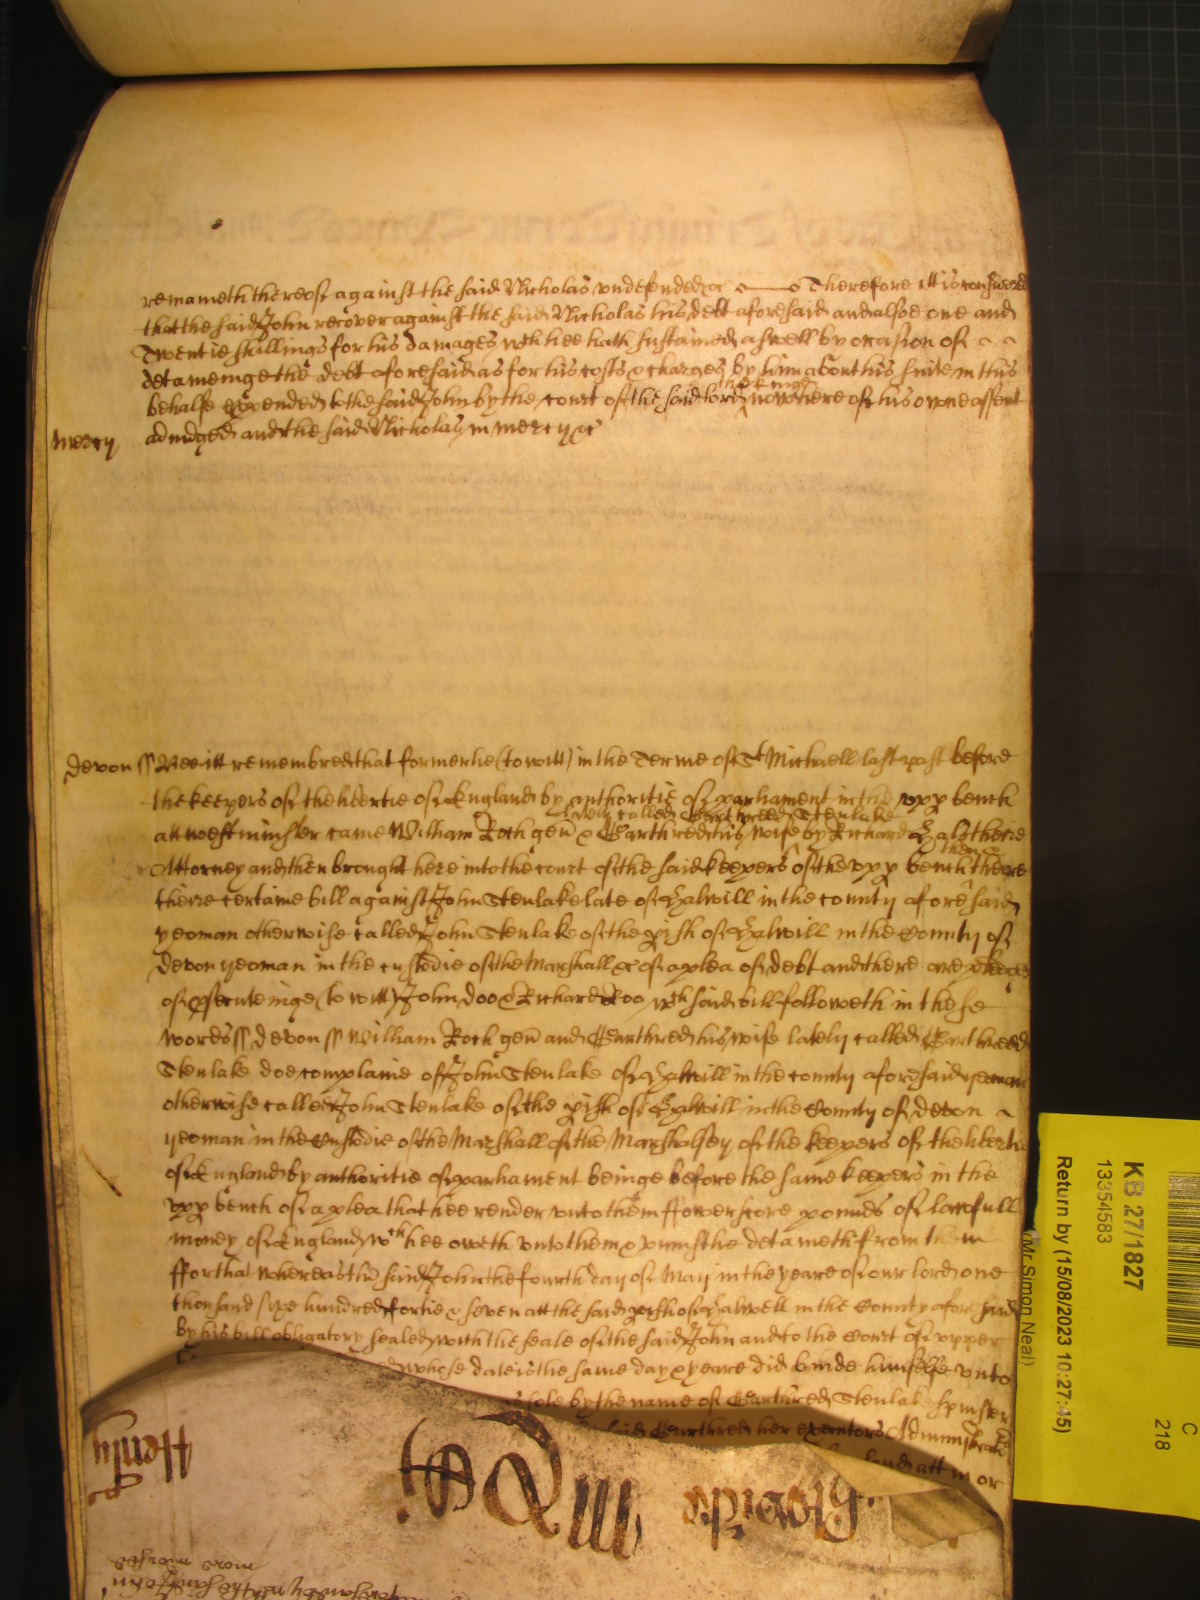 remaineth thereof against the said Nicholas undefended &c Therefore itt is considered
that the said John recover against the said Nicholas his debt aforesaid and alsoe one and
Twentie shillings for his damages wch hee hath sustained aswell by occasion of
detaineinge the debt aforesaid as for his costs & charges by him about his suite in this
behalfe expended to the said John by the court of the said lord the Kinge now here of his owne assent
adiudged and the said Nicholas in mercy &c
Mercy
Devon ss Bee itt remembred that formerlie (to witt) in the Terme of St Michaell last past before
the keepers of the libertie of England by authoritie of parliament in the upp bench
lately called Garthred Stenlake
att westminster came William Rock gen & Garthred his wife by Richard theire
then
Attorney and then brought here into the court of the said keepers of the upp bench there
theire certaine bill against John Stenlake late of Halwill in the county aforesaid
yeoman otherwise called John Stenlake of the pish of Halwill in the County of
Devon yeoman in the custodie of the Marshall &c of a plea of debt and there are pledges
of psecuteinge (to witt) John doo & Richard Roo wch said bill followeth in these
words ss devon ss William Rock gen and Garthred his wife lately called Garthred
Stenlake doe complaine of John Stenlake of Halwill in the county aforesaid yeoman
otherwise called John Stenlake of the pish of Halwill in the County of devon
yeoman in the Custodie of the Marshall of the Marshalsey of the keepers of the libertie
of England by authoritie of parliament beinge before the same keepers in the
upp bench of a plea that hee render unto them ffower score pounds of lawfull
money of England wch hee oweth unto them & uniustlie detaineth from them
ffor that whereas the said John the fourth day of May in the yeare of our lord one
thousand sixe hundred fortie & seven att the said pish of Halwell in the County aforesaid
by his bill obligatory sealed with the seale of the said John and to the Court of upper
whose date is the same day & yeare did binde himselfe unto
sole by the name of Garthred Stenlake spinster
said Garthred her executors Administrators
and att in or
Henry
KB 27/1827
13354583
Return by (15/08/2023 10:27:45)
(Mr Simon Neal)
C
218